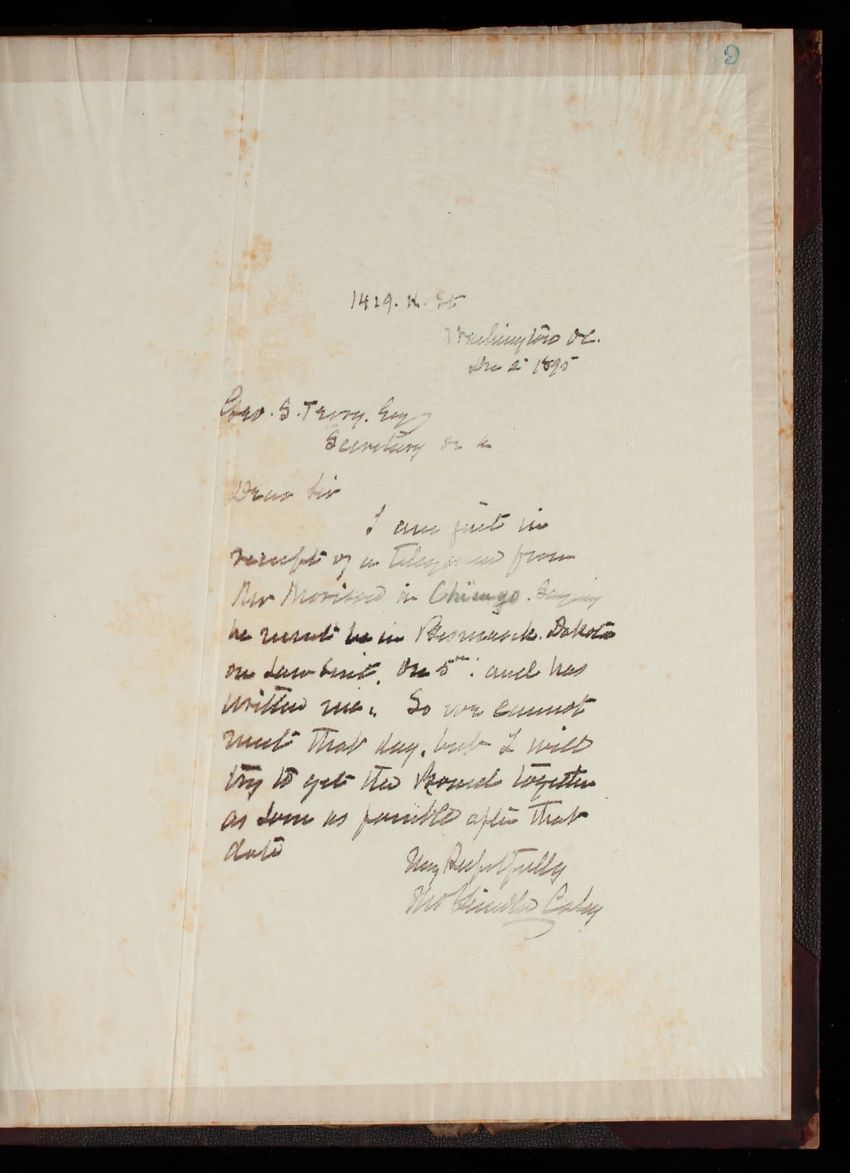 9
1429. K. St
Washington DC.
Dec 2 1895
Geo. S. Terry. Esq
Secretary
Dear Sir
I am just in
receipt of a telegram from
in Chicago. Saying
he must be in Bismarck. Dakota
on Law Suit. On 5th. and has
written me. So we cannot
meet that day, but I will
try to get the Board together
as soon as possible after that
date
Very Respectfully
Casey